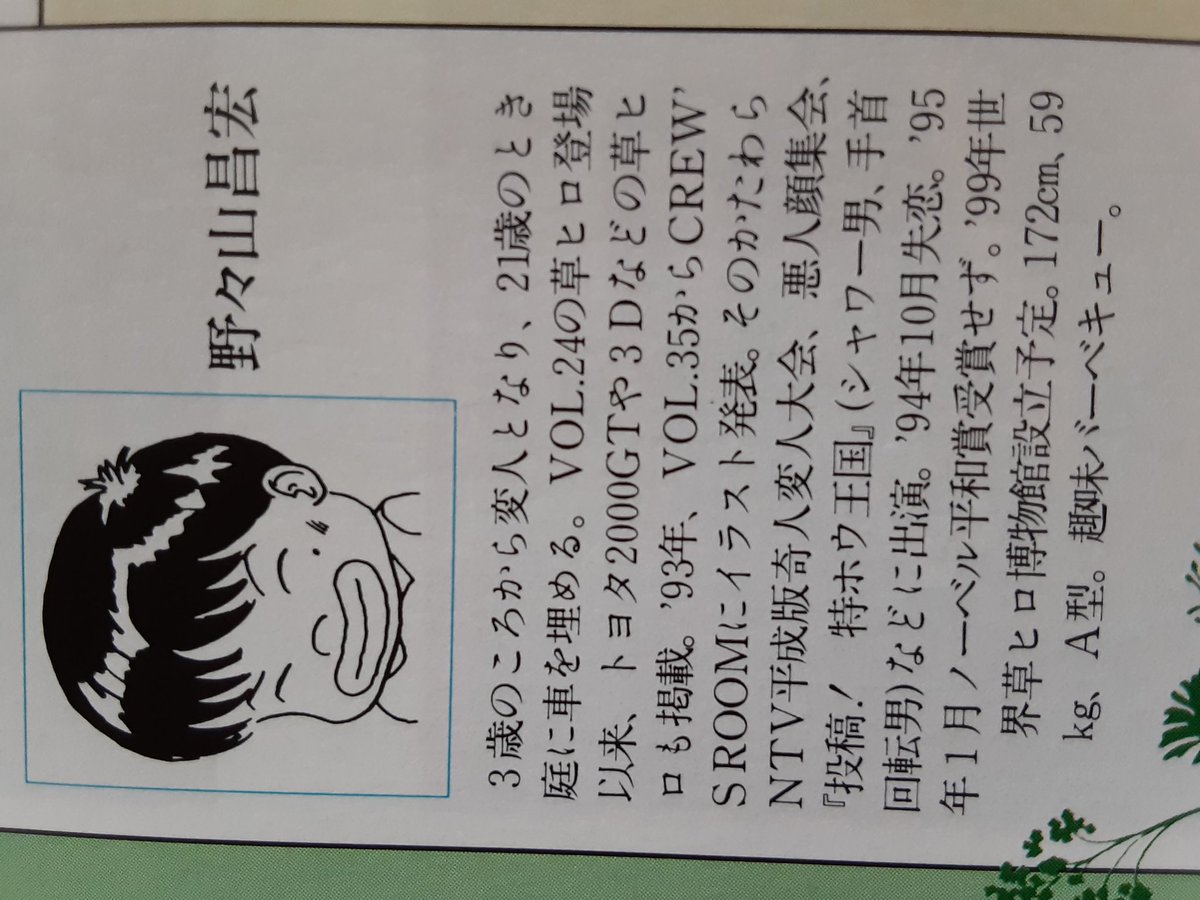 野々山昌宏
3歳のころから変人となり、21歳のとき
庭に車を埋める。VOL.24の草ヒロ登場
以来、トヨタ2000GTや3Dなどの草ヒ
ロも掲載。'93年、VOL.35からCREW'
SROOMにイラスト発表。そのかたわら
NTV平成版奇人変人大会、悪人顔集会、
『投稿！　特ホウ王国』(シャワー男、手首
回転男)などに出演。'94年10月失恋。'95
年1月ノーベル平和賞受賞せず。'99年世
界草ヒロ博物館設立予定。172cm、59
kg、A型。趣味バーベキュー。